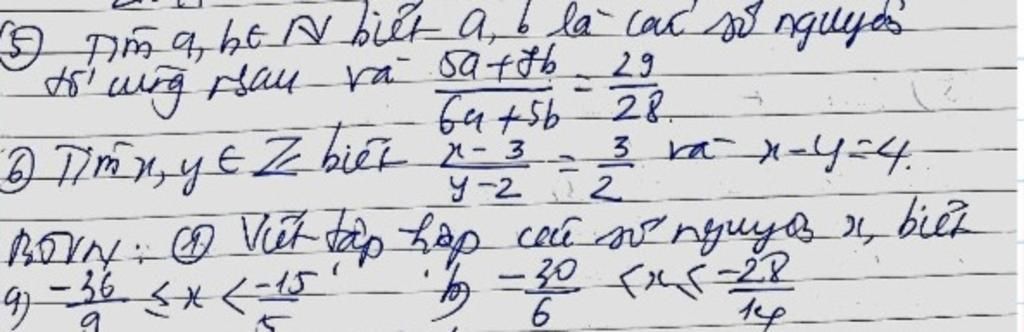 ⑤ Tìm a, b ∈ N biết a, b là các số nguyên
tố cùng nhau và (5a+7b)/(6a+5b) = 29/28.
⑥ Tìm x, y ∈ Z biết (x-3)/(y-2) = 3/2 và x-y=4.
BTVN: ① Viết tập hợp các số nguyên x, biết
a) -36/9 ≤ x < -15/5 b) -30/6 < x < -28/14